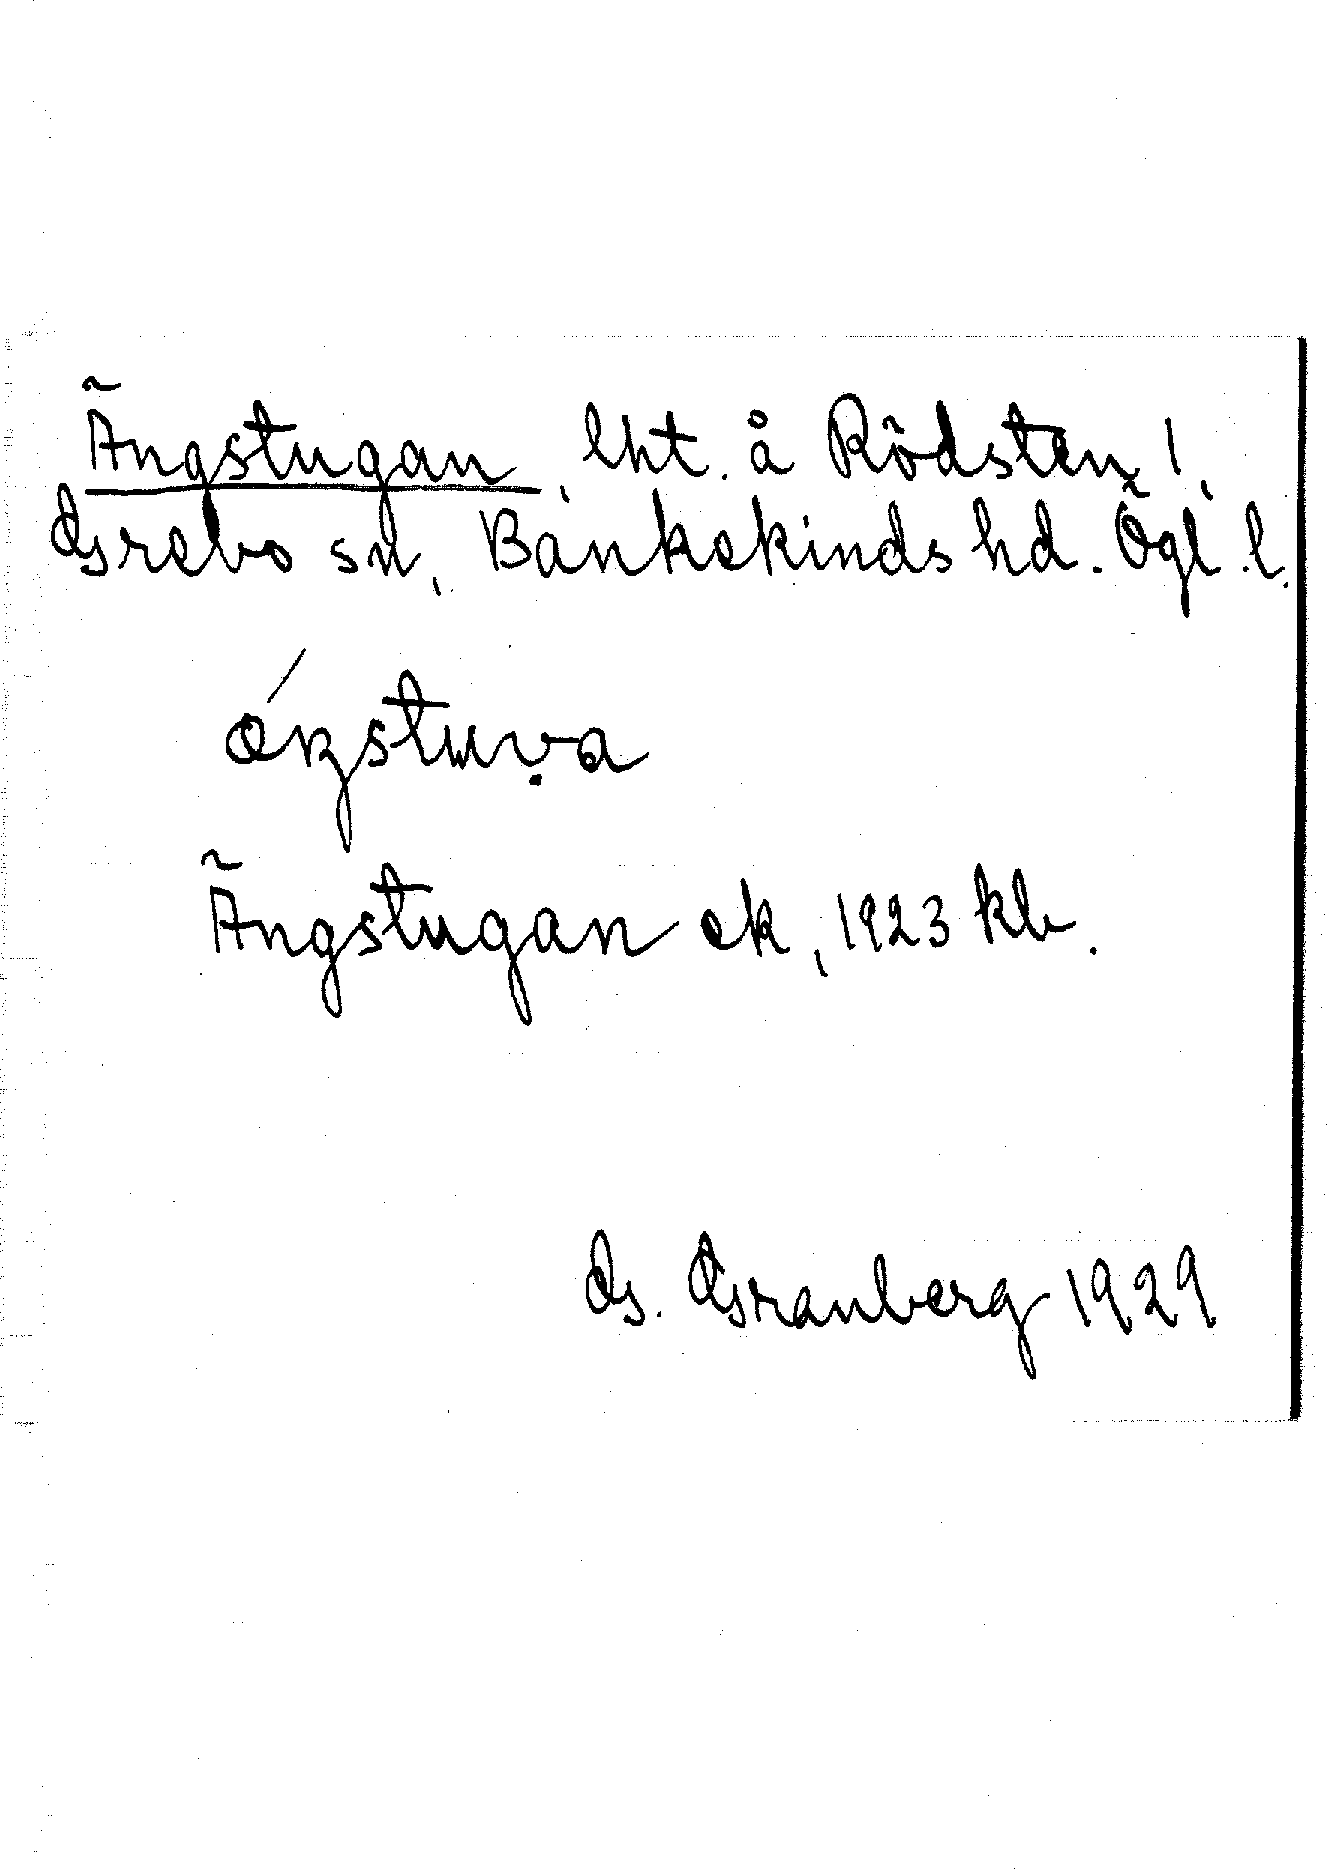 Ängstugan, lht. å Rödsten 1,
Grebo sn, Bankekinds hd. Ögl. l.
Ängstugan ek, 1923 kb.
G. Granberg 1929